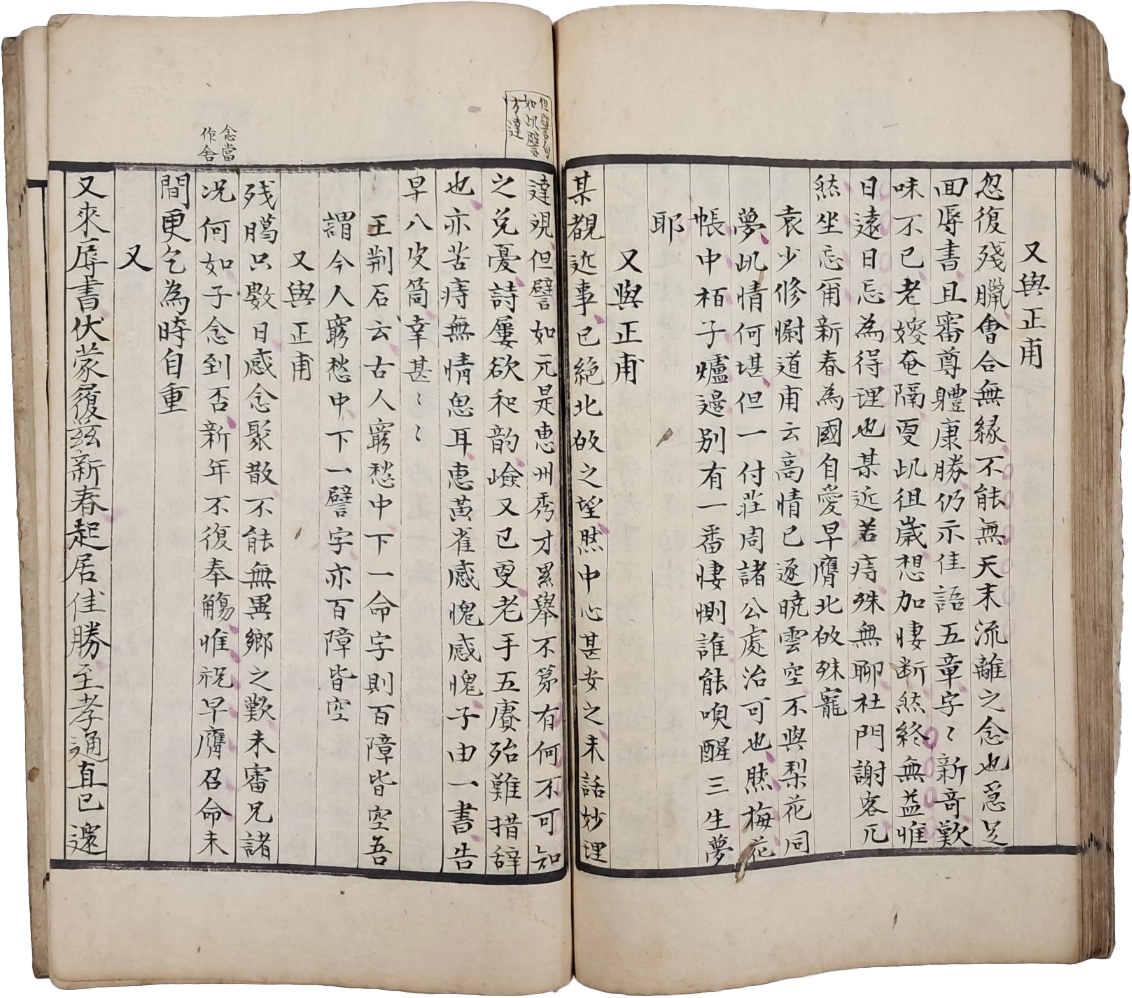 又與正甫
忽復殘臘會合無緣不能無天末流離之念也急足
回辱書且審尊體康勝仍示佳語五章字〻新奇歎
味不已老嫂奄隔更此徂歲想加悽斷然終無益惟
日遠日忘為得理也某近苦痔殊無聊杜門謝客兀
然坐忘爾新春為國自愛早膺北歸殊寵
袁少修慰道甫云高情已逐曉雲空不與梨花同
夢此情何堪但一付莊周諸公處治可也然梅花
帳中栢子爐邊別有一番悽惻誰能喚醒三生夢
耶
又與正甫
某覩近事已絕北歸之望然中心甚安之未話妙理
達視但譬如元是惠州秀才累舉不第有何不可知
之免憂詩屢欲和韵嶮又已更老手五賡殆難措辞
也亦苦痔無情思耳惠黃雀感愧感愧子由一書告
早入皮筒幸甚〻〻
王荆石云古人窮愁中下一命字則百障皆空吾
謂今人窮愁中下一譬字亦百障皆空
又與正甫
残臈只數日感念聚散不能無異鄉之歎未審兄諸
况何如子念到否新年不復奉觴惟祝早膺召命未
間更乞為時自重
又
又來辱書伏蒙履茲新春起居佳勝至孝通直已還
但譬句
如此譬
方達
念當
作舍